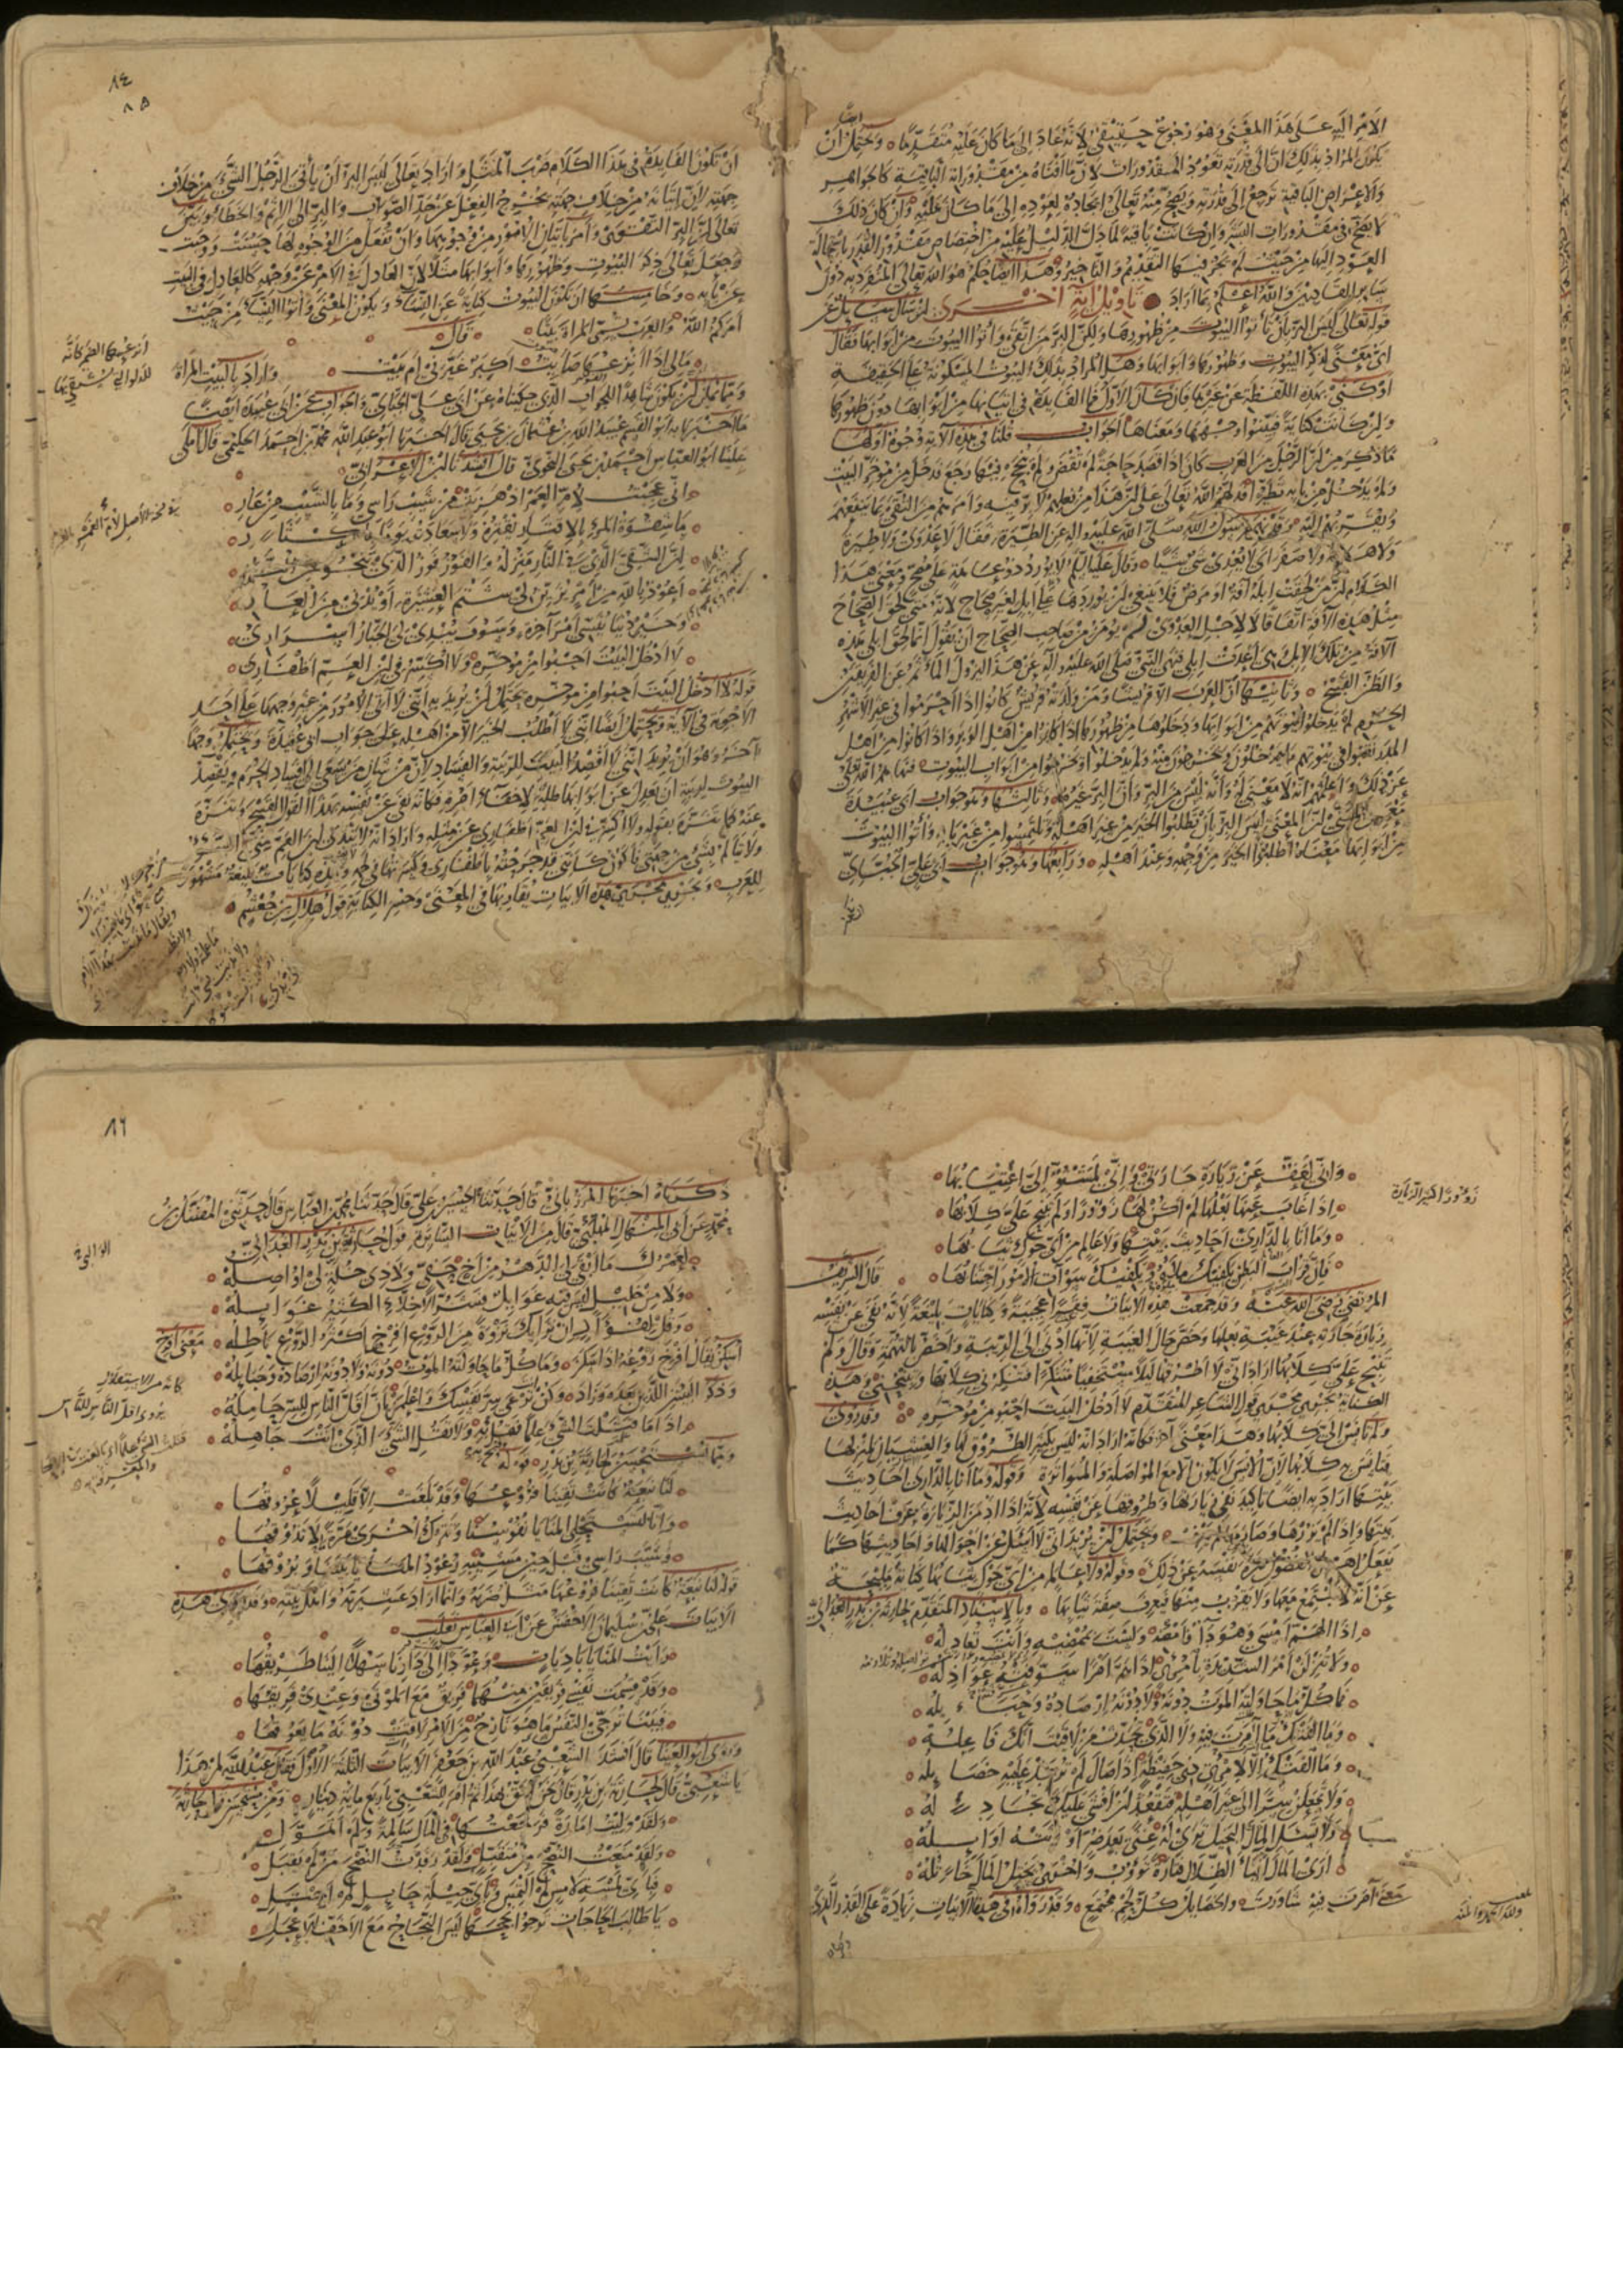 الأمر إليه على هذا المعنى وهو رجوع حقيقي لأنه عاد إلى ما كان عليه متقدما ويحتمل أيضا أن
يكون المراد بذلك أن إلى قدرته تعود المقدورات لأن ما أفناه من مقدوراته الباقية كالجواهر
والأعراض الباقية ترجع إلى قدرته ويصح منه تعالى إيجاده لعوده إلى ما كان عليه وإن كان ذلك
لا يصح في مقدورات البشر وإن كانت باقية لما دل الدليل عليه من اختصاص مقدور القدر باستحالة
العود إليها من حيث لم يجز فيها التقديم والتأخير وهذا أيضا حكم هو الله تعالى المتفرد به دون
سائر القادرين والله أعلم بما أراد تأويل آية أخرى إن سأل سائل عن
قوله تعالى ليس البر بأن تأتوا البيوت من ظهورها ولكن البر من اتقى وأتوا البيوت من أبوابها فقال
أي معنى لذكر البيوت وظهورها وأبوابها وهل المراد بذلك البيوت المسكونة على الحقيقة
أو كنى بهذه اللفظة عن غيرها فإن كان الأول فما الفايدة في إتيانها من أبوابها دون ظهورها
وإن كانت كناية فبينوا وجهها ومعناها الجواب قلنا في هذه الآية وجوه أولها
ما ذكر من أن الرجل من العرب كان إذا قصد حاجة لم تقض ولم ينجح فيها رجع فدخل من مؤخر البيت
ولم يدخل من بابه تطيرا فدلهم الله تعالى على أن هذا من فعلهم لا بر فيه وأمرهم من التقى بما ينفعهم
ويقربهم إليه وقد نهى رسول الله صلى الله عليه وآله عن الطيرة فقال لا عدوى ولا طيرة
ولا هامة ولا صفر أي لا يعدي شيء شيئا وقال عليه السلم لا يورد ذو عاهة على مصح ومعنى هذا
الكلام أن من لحقت إبله آفة أو مرض فلا ينبغي أن يوردها على إبل لغيره صحاح لأنه متى لحق الصحاح
مثل هذه الآفة اتفاقا لا لأجل العدوى لم يؤمن من صاحب الصحاح أن يقول إنما لحق إبلي هذه
الآفة من تلك الإبل هي أعدت إبلي فنهى النبي صلى الله عليه وآله عن هذا
والظن القبيح وثانيها أن العرب إلا قريشا ومن ولدته قريش كانوا إذا أحرموا في غير الأشهر
الحرم لم يدخلوا بيوتهم من أبوابها ودخلوها من ظهورها إذا كانوا من أهل الوبر وإذا كانوا من أهل
المدر نقبوا في بيوتهم ما يدخلون ويخرجون منه ولم يدخلوا ولم يخرجوا من أبواب البيوت فنهاهم الله تعالى
عن ذلك وأعلمهم أنه لا معنى له وأنه ليس من البر وأن البر غيره وثالثها وهو جواب أبي عبيدة
معمر بن المثنى أن المعنى ليس البر بأن تطلبوا الخير من غير أهله وتلتمسوا من غير بابه وأتوا البيوت
من أبوابها معناه اطلبوا الخير من وجهه وعند أهله ورابعها وهو جواب أبي علي الجبائي
٨٤
٨٥
أن تكون الفايدة في هذا الكلام ضرب المثل وأراد تعالى ليس البر أن يأتي الرجل الشيء من خلاف
جهته لأن إتيانه من خلاف جهته يخرج الفعل عن حد الصواب والبر إلى الإثم والخطأ وبين
تعالى أن البر التقوى وأمر بإتيان الأمور من وجوهها وأن تفعل من الوجوه لها حسنت وجبت
وجعل تعالى ذكر البيوت وظهورها وأبوابها مثلا لأن العادل في الأمر عن وجهه كالعادل في البيت
عن بابه وخامسها أن تكون البيوت كناية عن النساء ويكون المعنى وأتوا النساء من حيث
أمركم الله والعرب تسمي المرأة بيتا قال
ما لي إذا أنزعها صأيت أكبر غيرني أم بيت وأراد بالبيت المرأة
ومما يمكن أن يكون شاهدا للجواب الذي حكيناه عن أبي علي الجبائي والجواب عن أبي عبيدة أيضا
ما أخبرنا به أبو القسم عبيد الله بن عثمان بن يحيى قال أخبرنا أبو عبد الله محمد بن أحمد الحكيمي قال أملى
علينا أبو العباس أحمد بن يحيى النحوي قال أنشدنا ابن الأعرابي
إني عجبت لأم العمر إذ هزئت من شيب رأسي وما بالشيب من عار
ما شقوة المرء بالإقتار يقتره ولا سعادته يوما بإكثار
إن الشقي الذي في النار منزله والفوز فوز الذي ينجو من النار
أعوذ بالله من أمر يزين لي شتم العشيرة أو يدني من العار
وخير دنيا ينسي أمر آخرة وسوف يبدي لي الجبار أسراري
لا أدخل البيت أحبو من مؤخره ولا أكسر في ابن العم أظفاري
قوله لا أدخل البيت أحبو من مؤخره يحتمل أن يريد به أنني لا آتي الأمور من غير وجهها على أحد
الأجوبة في الآية ويحتمل أيضا أنني لا أطلب الخير إلا من أهله على جواب أبي عبيدة ويحتمل وجها
آخر وهو أن يريد أنني لا أقصد البيت للريبة والفساد لأن من شأن من يسعى إلى إفساد الحرم ويقصد
البيوت لريبة أن يعدل عن أبوابها طلبا لإخفاء أمره فكأنه نفى عن نفسه بهذا القول القبيح وتنزه
عنه كما تنزه بقوله ولا أكسر في ابن العم أظفاري عن مثله وأراد أنه لا يندى ابن العم مني السوء
ولا يتألم بشيء من جهتي فأكون كأنني قد جرحته بأظفاري وكسرتها في لحمه وهذه كنايات بليغة مشهورة
للعرب ويجري مجرى هذه الأبيات يقاربها في المعنى وحسن الكناية قول هلال بن خثعم
وإني لعف عن زيارة جارتي وإني لمشنوء إلي اغتيابها
إذا غاب عنها بعلها لم أكن لها زؤورا ولم تنبح علي كلابها
وما أنا بالداري أحاديث بيتها ولا عالم من أي حوك ثيابها
فإن قراب البطن يكفيك ملؤه ويكفيك سوآت الأمور اجتنابها قال الشريف
زؤورا كثير الزيارة
المرتضى رضي الله عنه وقد جمعت هذه الأبيات فقرا عجيبة وكنايات بليغة لأنه نفى عن نفسه
زيارة جارته عند غيبة بعلها وخص حال الغيبة لأنها أدنى إلى الريبة وأخص بالتهمة وقال ولم
تنبح علي كلابها أراد أني لا أطرقها ليلا مستخفيا متنكرا فتنكرني كلابها وتنبحني وهذه
الكناية تجري مجرى قول الشاعر المتقدم لا أدخل البيت أحبو من مؤخره وقد روى
ولم تأنس إلي كلابها وهذا معنى آخر كأنه أراد أنه ليس بكثير الطروق لها والغشيان لمنزلها
فتأنس به كلابها لأن الأنس لا يكون إلا مع المواصلة والمواترة وقوله وما أنا بالداري أحاديث
بيتها أراد به أيضا تأكيد نفي زيارتها وطروقها عن نفسه لأنه إذا أدمن الزيارة عرف أحاديث
بيتها وإذا لم يزرها وصارمها لم يعرف ويحتمل أن يريد أني لا أسأل عن أحوالها وأحاديثها كما
يفعل أهل الفضول فنزه نفسه عن ذلك وقوله ولا عالم من أي حوك ثيابها كناية مليحة
عن أنه لا يجتمع معها ولا يقرب منها فيعرف صفة ثيابها وبالإسناد المتقدم لحارثة بن بدر الغداني
إذا الهم أمسى وهو داء فأمضه ولست بممضيه وأنت تعادله
ولا تنزلن أمر الشديدة بامرئ إذا هم أمرا عوقته عواذله
فما كل ما حاولته الموت دونه ولا دونه أرصاده وحبائله
وما الفتك ما آمرت فيه ولا الذي تحدث من لاقيت أنك فاعله
وما الفتك إلا لامرئ ذي حفيظة إذا صال لم ترعد عليه خصائله
ولا تجعلن سرا إلى غير أهله فتقعد إن أفشى عليك تجادله
ولا تسأل المال البخيل ترى له غنى بعد ضر أورثته أوائله
أرى المال أفياء الظلال فتارة يؤوب وأخرى يختل المال خاتله
معنى آمرت فيه شاورت والخصايل كل لحم مجتمع وقد روى في هذه الأبيات زيادة على القدر الذي
٨٦
ذكرناه أخبرنا المرزباني قال حدثنا الحسين بن علي قال حدثنا محمد بن العباس قال حدثني المفضل بن
محمد عن أبي المنهال المهلبي قال من الأبيات السائرة قول حارثة بن بدر الغداني
لعمرك ما أبقى لي الدهر من أخ حفي ولا ذي خلة لي أواصله
ولا من خليل ليس فيه غوايل فشر الأخلاء الكثير غوايله
وقل لفؤاد إن نزا بك نزوة من الروع أفرخ أكثر الروع باطله معنى أفرخ
اسكن يقال أفرخ روعه إذا سكن وما كل ما حاولته الموت دونه ولا دونه أرصاده وحبايله
وذكر البيتين اللذين بعده وزاد وكن أنت ترعى سر نفسك واعلمن بأن أقل الناس للسر حامله
إذا ما قتلت الشيء علما فقل به ولا تقل الشيء الذي أنت جاهله
ومما يستحسن لحارثة بن بدر قوله
لنا نبعة كانت تقينا فروعها وقد بلغت إلا قليلا عروقها
وإنا لتستحلي المنايا نفوسنا ونترك أخرى مرة لا نذوقها
وشيب رأسي قبل حين مشيبه رعود المنايا بيننا وبروقها
قوله لنا نبعة كانت تقينا فروعها مثل ضربه وإنما أراد عشيرته وأهل بيته وقد روى هذه
الأبيات علي بن سليمان الأخفش عن أبي العباس ثعلب
رأيت المنايا باديات وعودا إلى دارنا سهلا إلينا طريقها
وقد قسمت نفسي فريقين منهما فريق مع الموتى وعندي فريقها
فبينا نرجي النفس ما هو نازح من الأمر لاقت دونه ما يعوقها
وروى أبو العينا قال أنشد الشعبي عبد الله بن جعفر الأبيات الثلثة الأول فقال عبد الله لمن هذا
يا شعبي قال لحارثة بن بدر قال نحن أحق بهذا ثم أمر للشعبي بأربع ماية دينار ومن مستحسن قول حارثة
ولقد وليت إمارة فرجعتها في المال سالمة ولم أتمول
ولقد منعت النصح من متقبل ولقد رفدت النصح من لم يقبل
فبأي لمسة لامس لم ألتمس وبأي حيلة حايل لم أحتل
يا طالب الحاجات يرجو نجحها ليس النجاح مع الأخف الأعجل